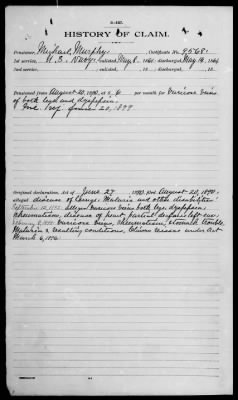 3-427.
HISTORY OF CLAIM.
Pensioner, Michael Murphy Certificate No. 9568
1st service, U.S. Navy, enlisted May 8, 1861 discharged May 14, 1864
2d service, enlisted , 18 , discharged , 18
Pensioned from August 20, 1890, at $ 6 per month for Varicose veins
of both legs and dyspepsia.
20, 1899
Original declaration, Act of June 27, 1890, filed August 20, 1890
alleged disease of lungs, Malaria and other disabilities
September 12, 1892 alleges varicose veins both legs, dyspepsia,
Rheumatism, disease of heart, partial deafness left ear.
Varicose veins, rheumatism, stomach trouble,
Malaria & resulting conditions. Claims reissue under Act
March 6, 1896